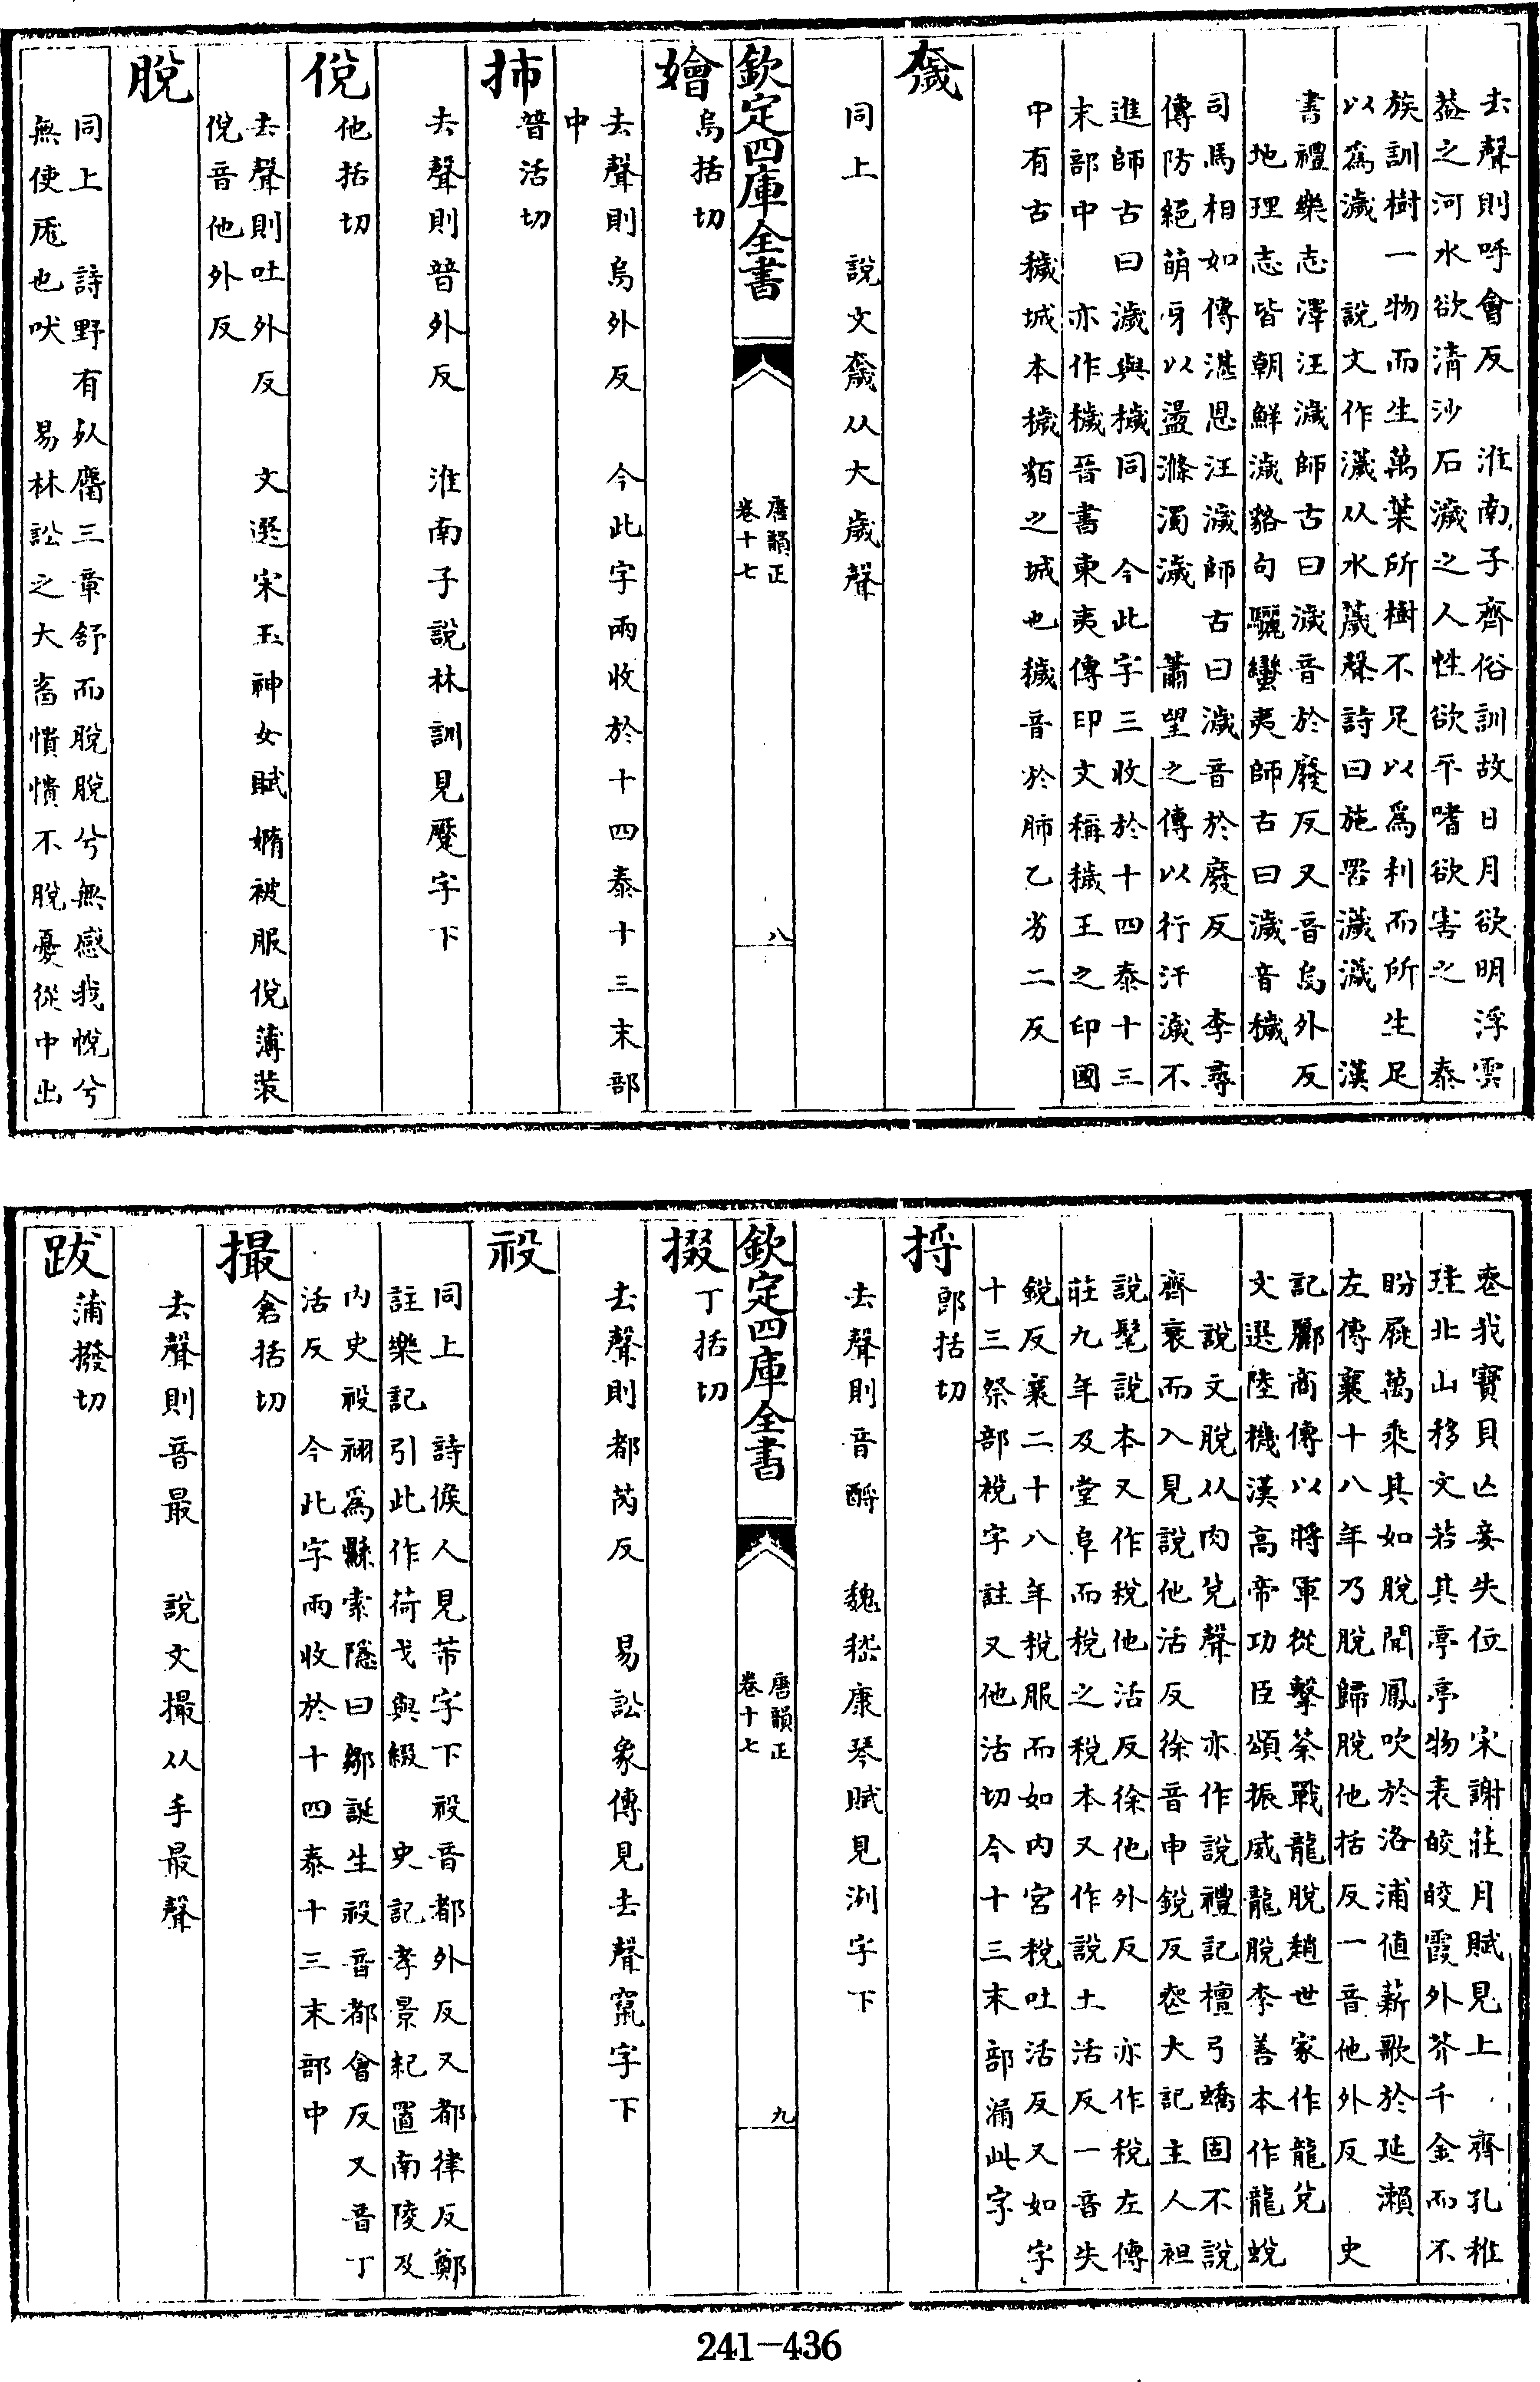 去聲則呼會反　淮南子齊俗訓故日月欲明浮雲
葢之河水欲清沙石濊之人性欲平嗜欲害之　泰
族訓樹一物而生萬葉所樹不足以爲利而所生足
以爲濊　說文作濊从水歲聲詩曰施罟濊濊　漢
書禮樂志澤汪濊師古曰濊音於廢反又音烏外反
地理志皆朝鮮濊貉句驪蠻夷師古曰濊音穢
司馬相如傳湛恩汪濊師古曰濊音於廢反　李尋
傳防絕萌牙以盪滌濁濊　蕭望之傳以行汙濊不
進師古曰濊與穢同　今此字三收於十四泰十三
末部中　亦作穢晉書東夷傳印文稱穢王之印國
中有古穢城本穢貊之城也穢音於肺乙劣二反
奯
同上　說文奯从大歲聲
欽定四庫全書
唐韻正
卷十七
八
㜅烏括切
去聲則烏外反　今此字兩收於十四泰十三末部
中
㧊普活切
去聲則普外反　淮南子說林訓見蹷字下
侻他括切
去聲則吐外反　文選宋玉神女賦嫷被服侻薄裝
侻音他外反
脫
同上　詩野有死麕三章舒而脫脫兮無感我帨兮
無使尨也吠　易林訟之大畜憒憒不脫憂從中出
喪我寶貝亡妾失位　宋謝莊月賦見上　齊孔稚
珪北山移文若其亭亭物表皎皎霞外芥千金而不
盼屣萬乘其如脫聞鳳吹於洛浦值薪歌於延瀨
左傳襄十八年乃脫歸脫他括反一音他外反　史
記酈商傳以將軍從擊荼戰龍脫趙世家作龍兌
文選陸機漢高帝功臣頌振威龍脫李善本作龍蛻
說文脫从肉兌聲　亦作說禮記檀弓蟜固不說
齊衰而入見說他活反徐音申銳反喪大記主人袒
說髦說本又作稅他活反徐他外反　亦作稅左傳
莊九年及堂阜而稅之稅本又作說土活反一音失
銳反襄二十八年稅服而如內宮稅吐活反又如字
十三祭部稅字註又他活切今十三末部漏此字
捋郎括切
去聲則音酹　魏嵇康琴賦見洌字下
欽定四庫全書
唐韻正
卷十七
九
掇丁括切
去聲則都芮反　易訟象傳見去聲竄字下
祋
同上　詩候人見芾字下祋音都外反又都律反鄭
註樂記引此作荷戈與綴　史記孝景紀置南陵及
內史祋祤爲縣索隱曰鄒誕生祋音都會反又音丁
活反　今此字兩收於十四泰十三末部中
撮倉括切
去聲則音最　說文撮从手最聲
跋蒲撥切
241—436